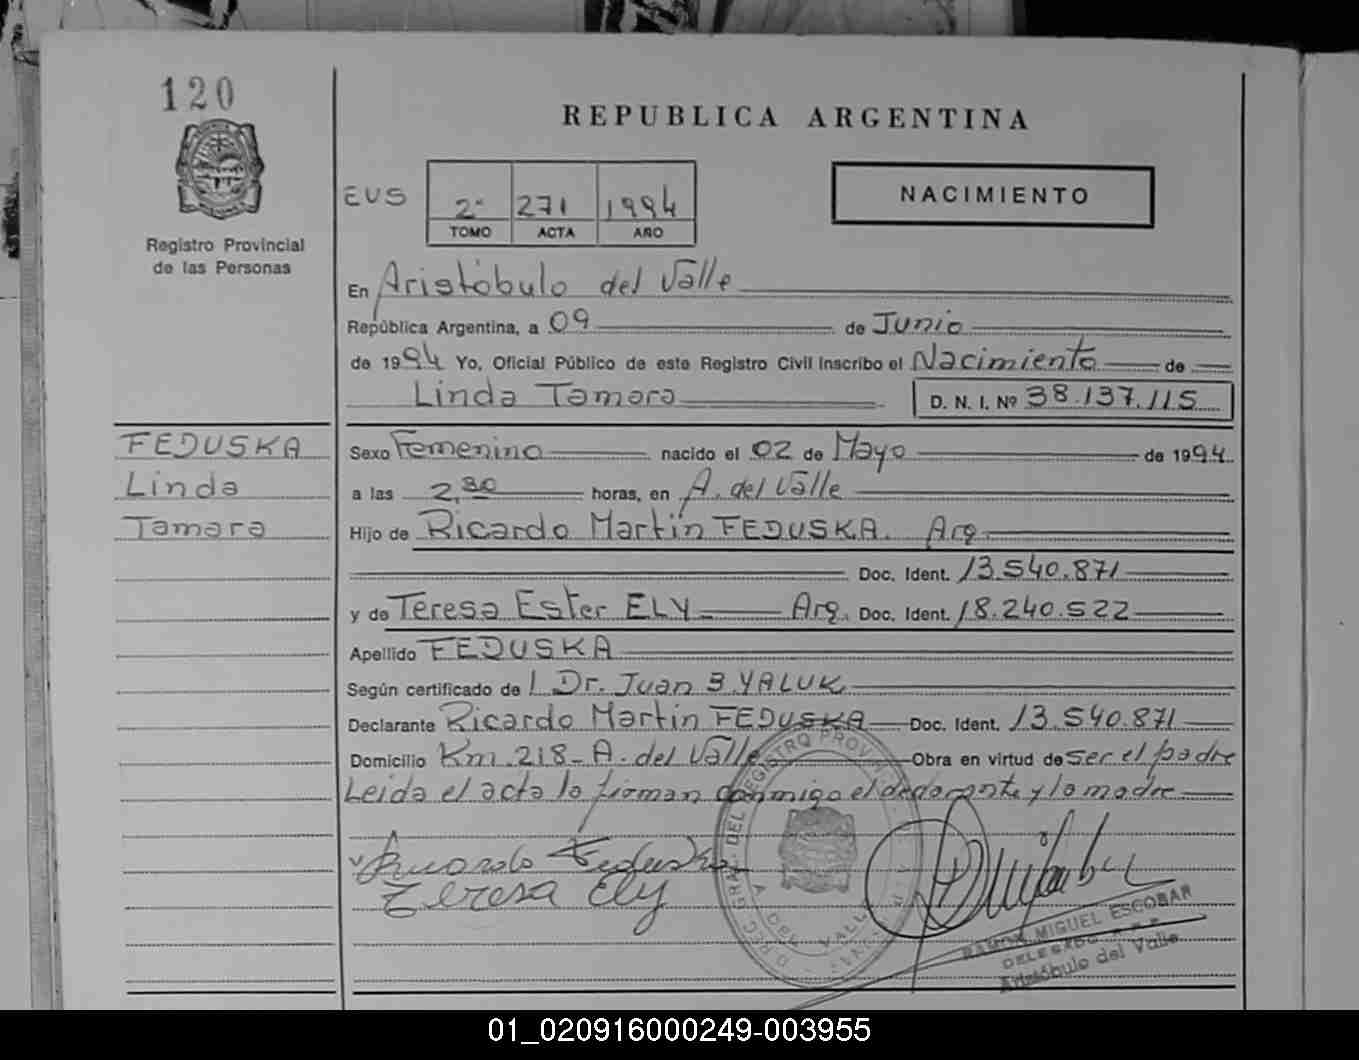 120
REPUBLICA ARGENTINA
EUS
2° 271 1994
TOMO ACTA AÑO
NACIMIENTO
Registro Provincial
de las Personas
En Aristóbulo del Valle
República Argentina, a 09 de Junio
de 1994 Yo, Oficial Público de este Registro Civil inscribo el Nacimiento de
Linda Tamara D. N. I. Nº 38.137.115
FEDUSKA
Linda
Tamara
Sexo Femenino nacido el 02 de Mayo de 1994
a las 2,30 horas, en A. del Valle
Hijo de Ricardo Martín FEDUSKA. Arg.
Doc. Ident. 13.540.871
y de Teresa Ester ELY Arg. Doc. Ident. 18.240.522
Apellido FEDUSKA
Según certificado de l Dr. Juan B YALUK
Declarante Ricardo Martin FEDUSKA Doc. Ident. 13.540.871
Domicilio Km. 218 - A. del Valle Obra en virtud de ser el padre
Leida el acta la firman conmigo el declarante y la madre
Ricardo Feduska
Teresa Ely
DIREC. GRAL. DEL REGISTRO PROVIN
A. DEL VALLE
RAMON MIGUEL ESCOBAR
DELEGADO
Aristóbulo del Valle
01_020916000249-003955